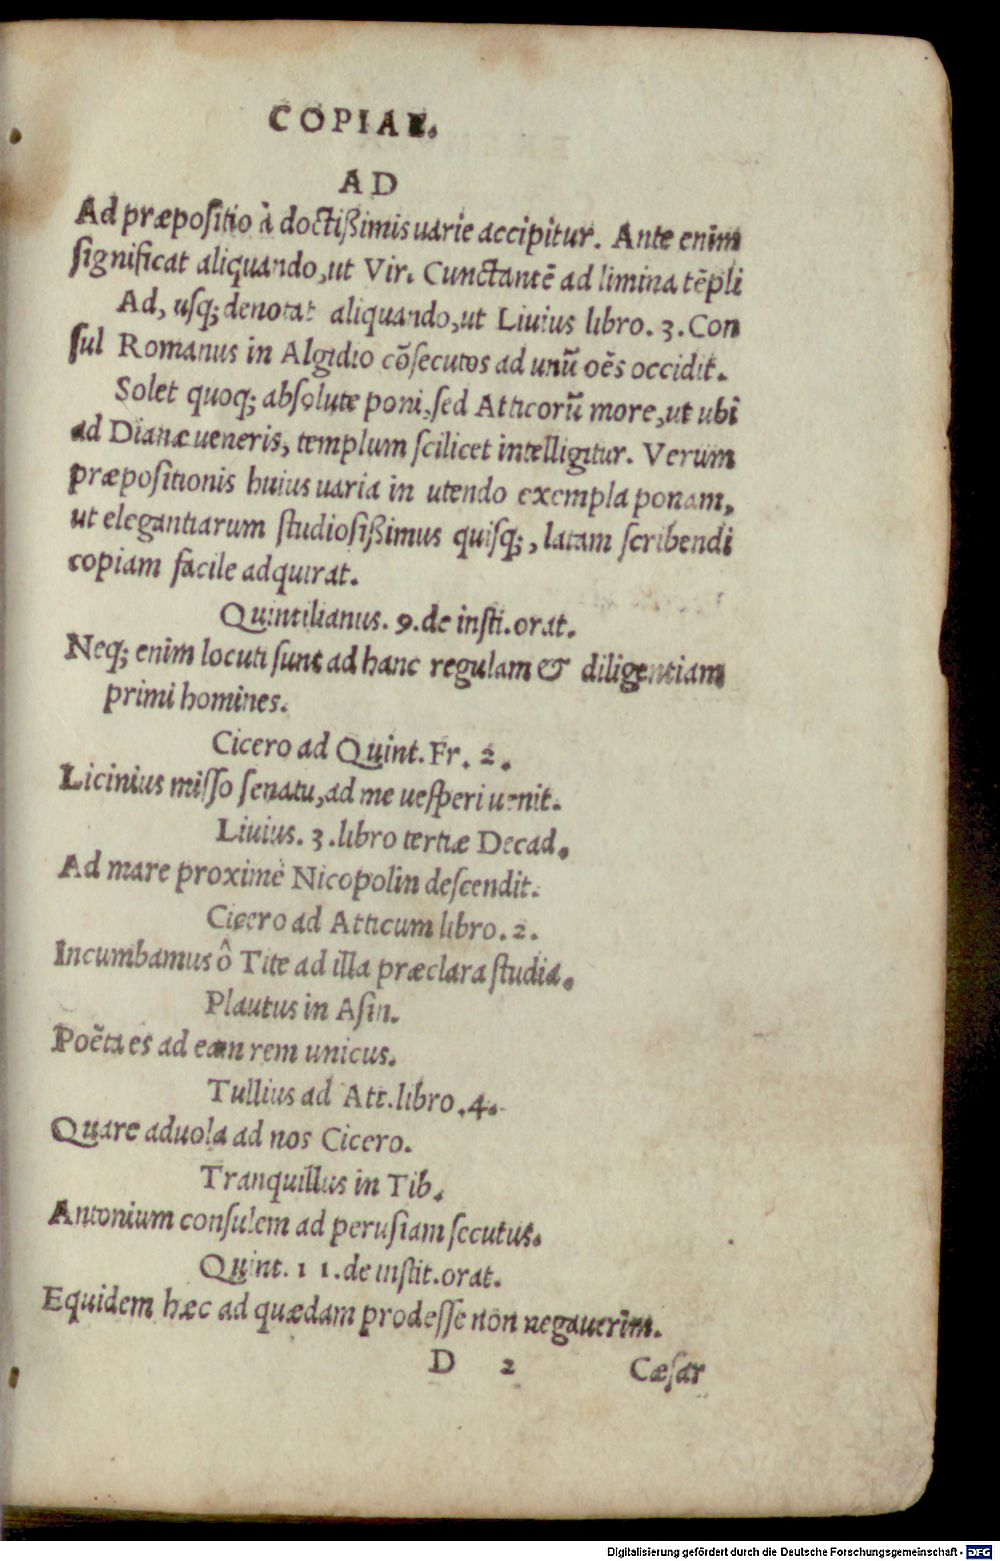 COPIAE.
AD
Ad præpositio à doctißimis uarie accipitur. Ante enim
significat aliquando, ut Vir. Cunctantē ad limina tēpli
Ad, usq; denotat aliquando, ut Liuius libro. 3. Con
sul Romanus in Algidio cōsecutos ad unū oēs occidit.
Solet quoq; absolute poni, sed Atticorū more, ut ubi
ad Dianæ ueneris, templum scilicet intelligitur. Verum
præpositionis huius uaria in utendo exempla ponam,
ut elegantiarum studiosißimus quisq;, latam scribendi
copiam facile adquirat.
Quintilianus. 9. de insti. orat.
Neq; enim locuti sunt ad hanc regulam & diligentiam
primi homines.
Cicero ad Quint. Fr. 2.
Licinius misso senatu, ad me uesperi uenit.
Liuius. 3. libro tertiæ Decad.
Ad mare proximè Nicopolin descendit.
Cicero ad Atticum libro. 2.
Incumbamus ô Tite ad illa præclara studia.
Plautus in Asin.
Poēta es ad eam rem unicus.
Tullius ad Att. libro. 4.
Quare aduola ad nos Cicero.
Tranquillus in Tib.
Antonium consulem ad perusiam secutus.
Quint. 11. de instit. orat.
Equidem hæc ad quædam prodesse non negauerim.
D 2 Cæsar
Digitalisierung gefördert durch die Deutsche Forschungsgemeinschaft - DFG